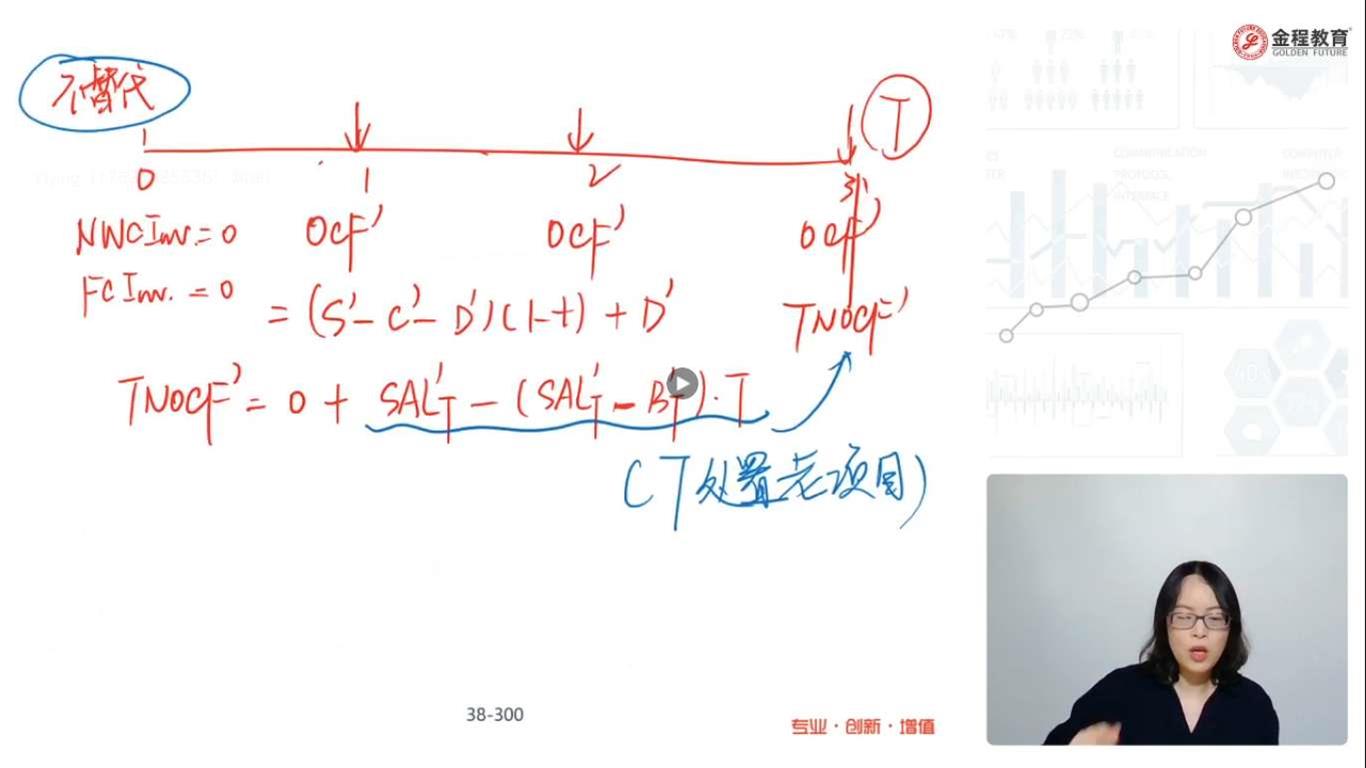 金程教育
GOLDEN FUTURE
不替代
T
0 1 2 3
NWCInv. = 0 OCF' OCF' OCF'
FCInv. = 0
= (S' - C' - D')(1-t) + D' TNOCF'
TNOCF' = 0 + SAL'T - (SAL'T - B'T)·T
(T处置老项目)
38-300
专业·创新·增值
COMMUNICATION
PROTOCOL
INTERFACE